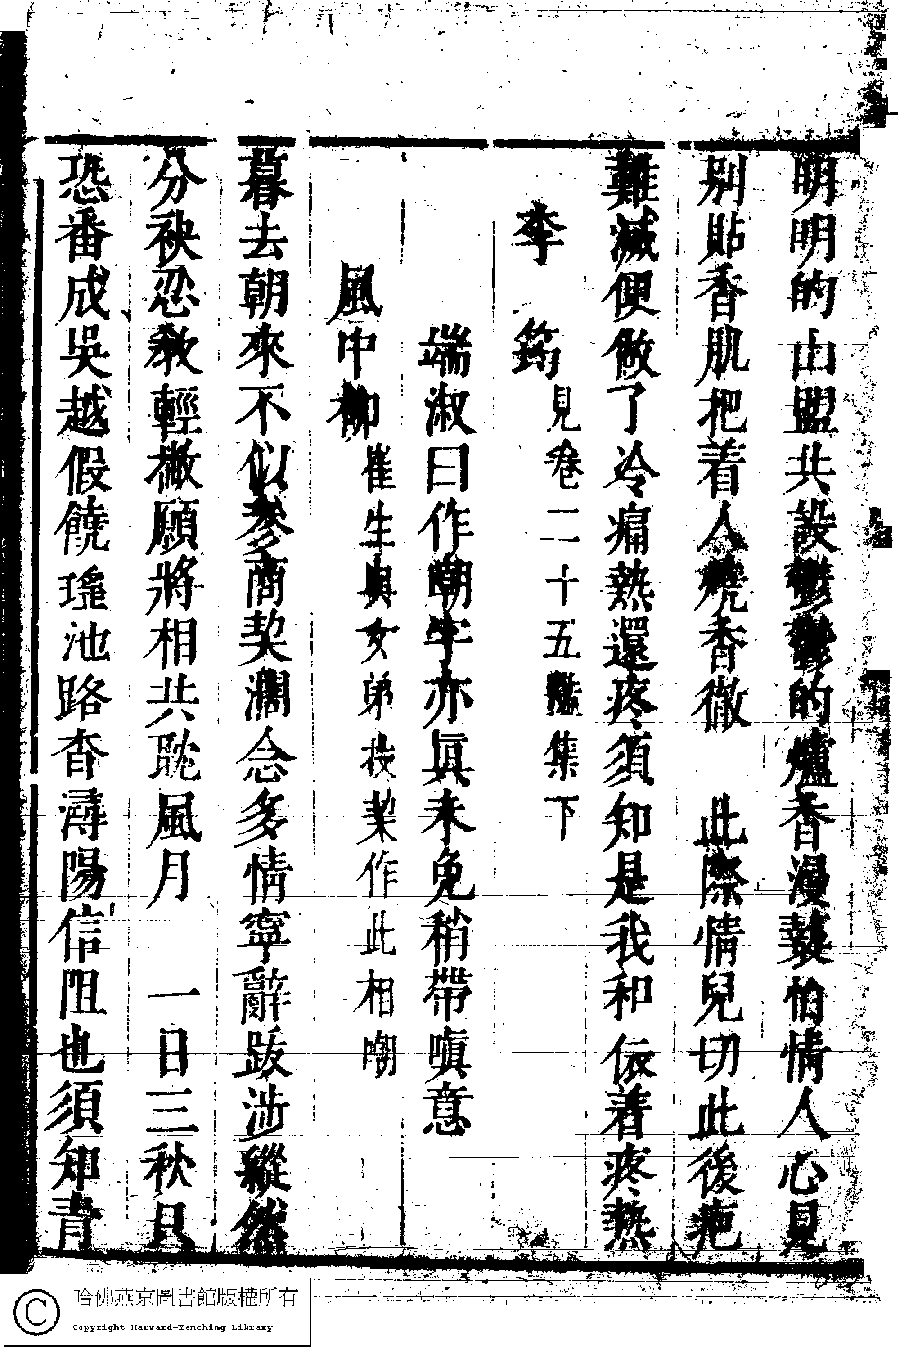 明明的山盟共設鬱鬱的爐香漫爇怕情人心見
別貼香肌把着人燒香徹　此際情兒切此後疤
難滅便做了冷痛熱還疼須知是我和伊着疼熱
李　筠見卷二十五豔集下
端淑曰作嘲字亦眞未免稍帶嗔意
風中柳崔生與女弟㧞契作此相嘲
暮去朝來不似參商契濶念多情寧辭跋涉縱然
分袂忍教輕撇願將相共耽風月　一日三秋具
恐番成吳越假饒瑤池路杳潯陽信阻也須知青
哈佛燕京圖書館版權所有
Copyright Harvard-Yenching Library